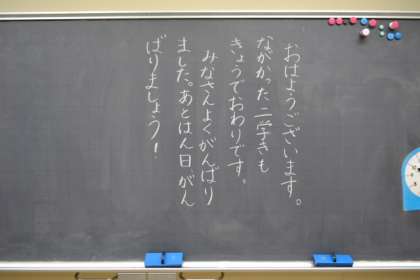 おはようございます。
ながかった二学きも
きょうでおわりです。
みなさんよくがんばり
ました。あとはん日がん
ばりましょう!